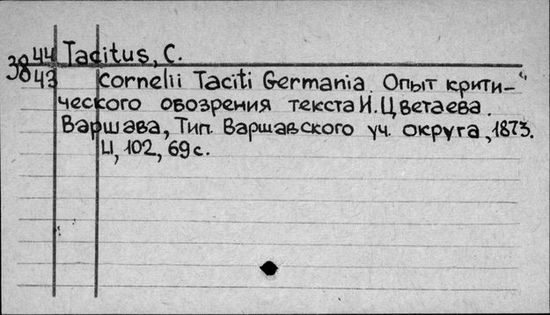 3844 Tacitus, C.
43 Cornelii Taciti Germania. Опыт крити-
ческого обозрения текста И. Цветаева.
Варшава, Тип. Варшавского уч. округа, 1873.
102, 69 с.